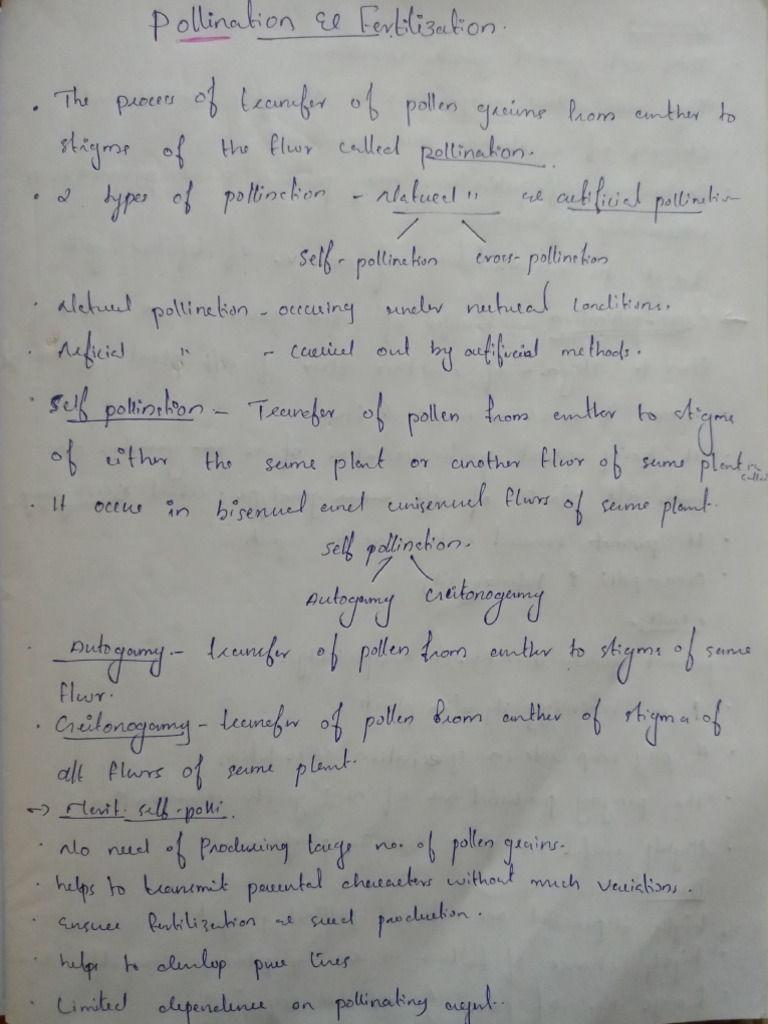 Pollination & Fertilization.
• The process of transfer of pollen grains from anther to
stigma of the flwr called pollination.
• 2 types of pollination - Natural " & artificial pollination
self-pollination cross-pollination
• Natural pollination - occuring under natural conditions.
• Arficial " - carried out by artificial methods.
• Self pollination - Transfer of pollen from anther to stigma
of either the same plant or another flwr of same plant
• It occur in bisexual and unisexual flwrs of same plant.
self pollination.
Autogamy Geitonogamy
• Autogamy - transfer of pollen from anther to stigma of same
flwr.
• Geitonogamy - transfer of pollen from anther of stigma of
all flwrs of same plant.
→ Merit self-polli.
• No need of Producing large no. of pollen grains.
• helps to transmit parental characters without much variations.
• ensure fertilization & seed production.
• helps to develop pure lines
• Limited dependence on pollinating agent.